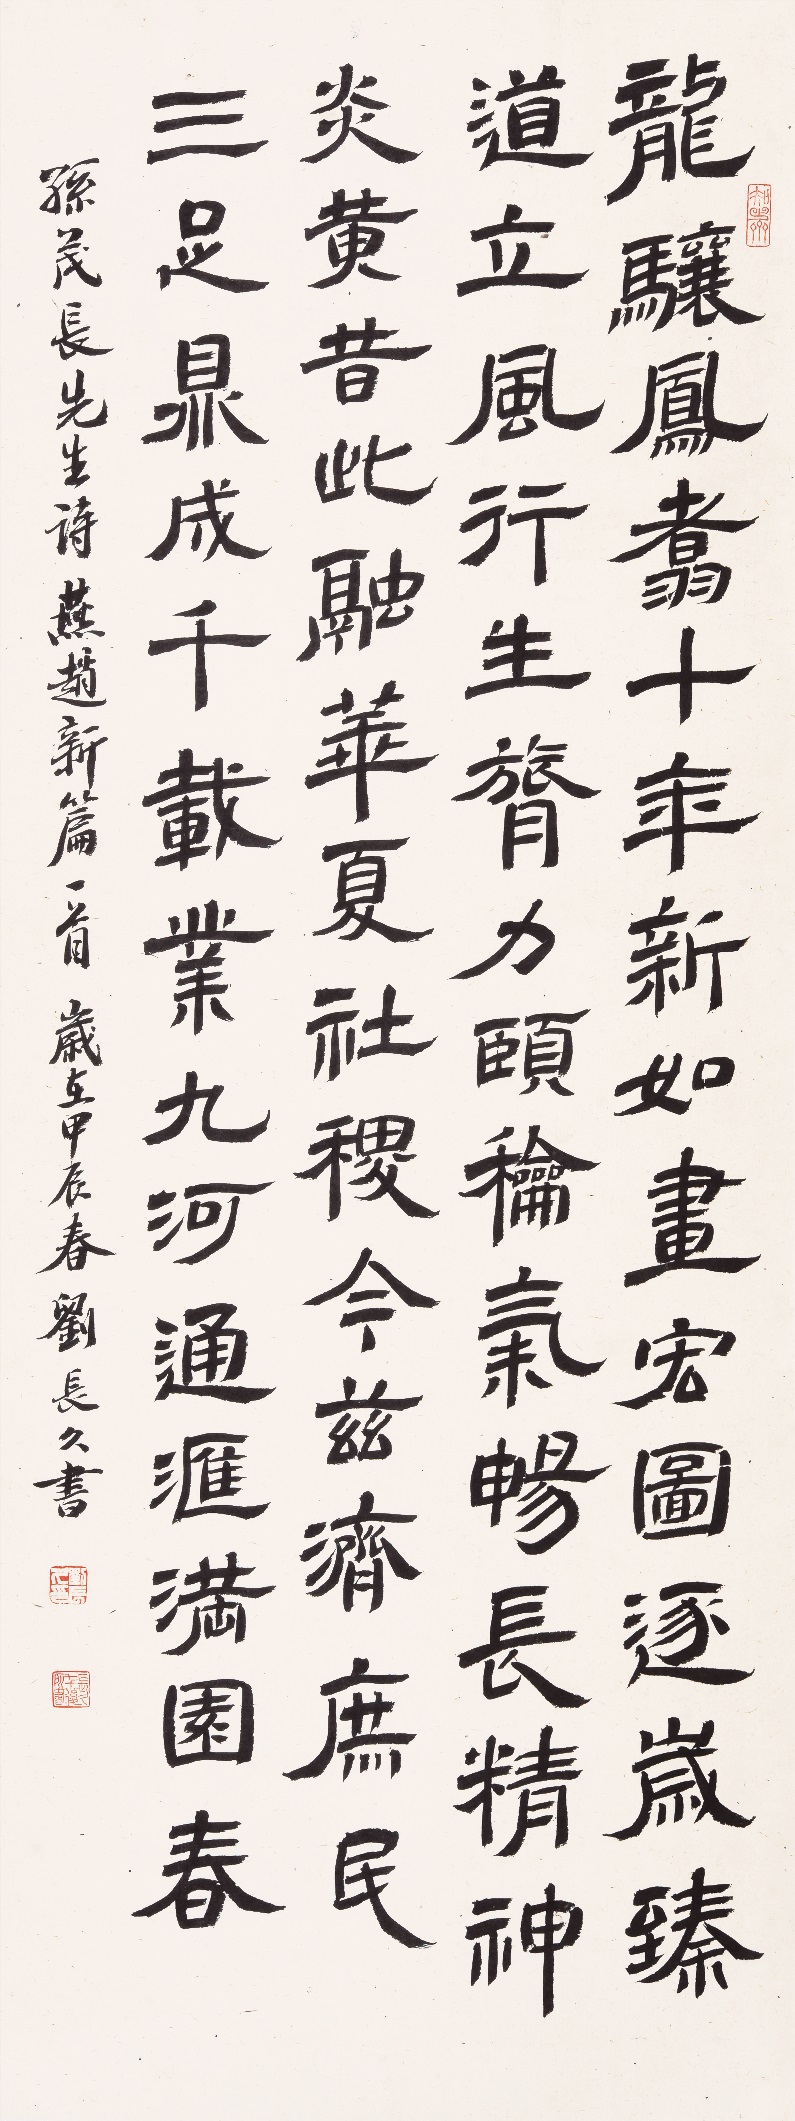 龍驤鳳翥十年新如畫宏圖逐歲臻
道立風行生膂力頤龢氣暢長精神
炎黄昔此融華夏社稷今兹濟庶民
三足鼎成千載業九河通滙满園春
孫茂長先生诗燕趙新篇一首歲在甲辰春劉長久書